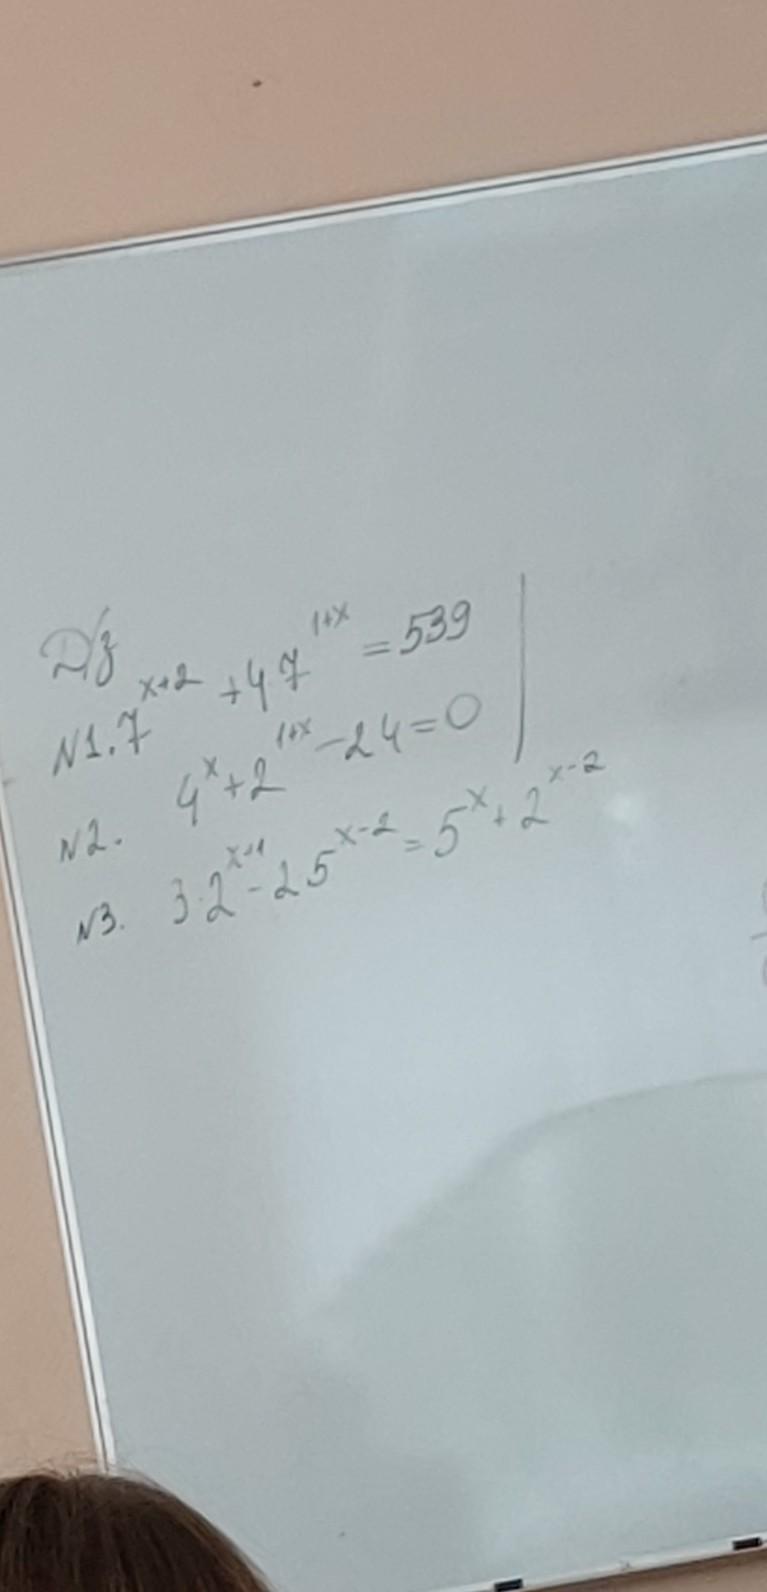 D/з
N1. 7^{x+2} + 4 7^{1+x} = 539
N2. 4^x + 2^{1+x} - 24 = 0
N3. 3·2^{x+1} - 2 5^{x-2} = 5^x + 2^{x-2}